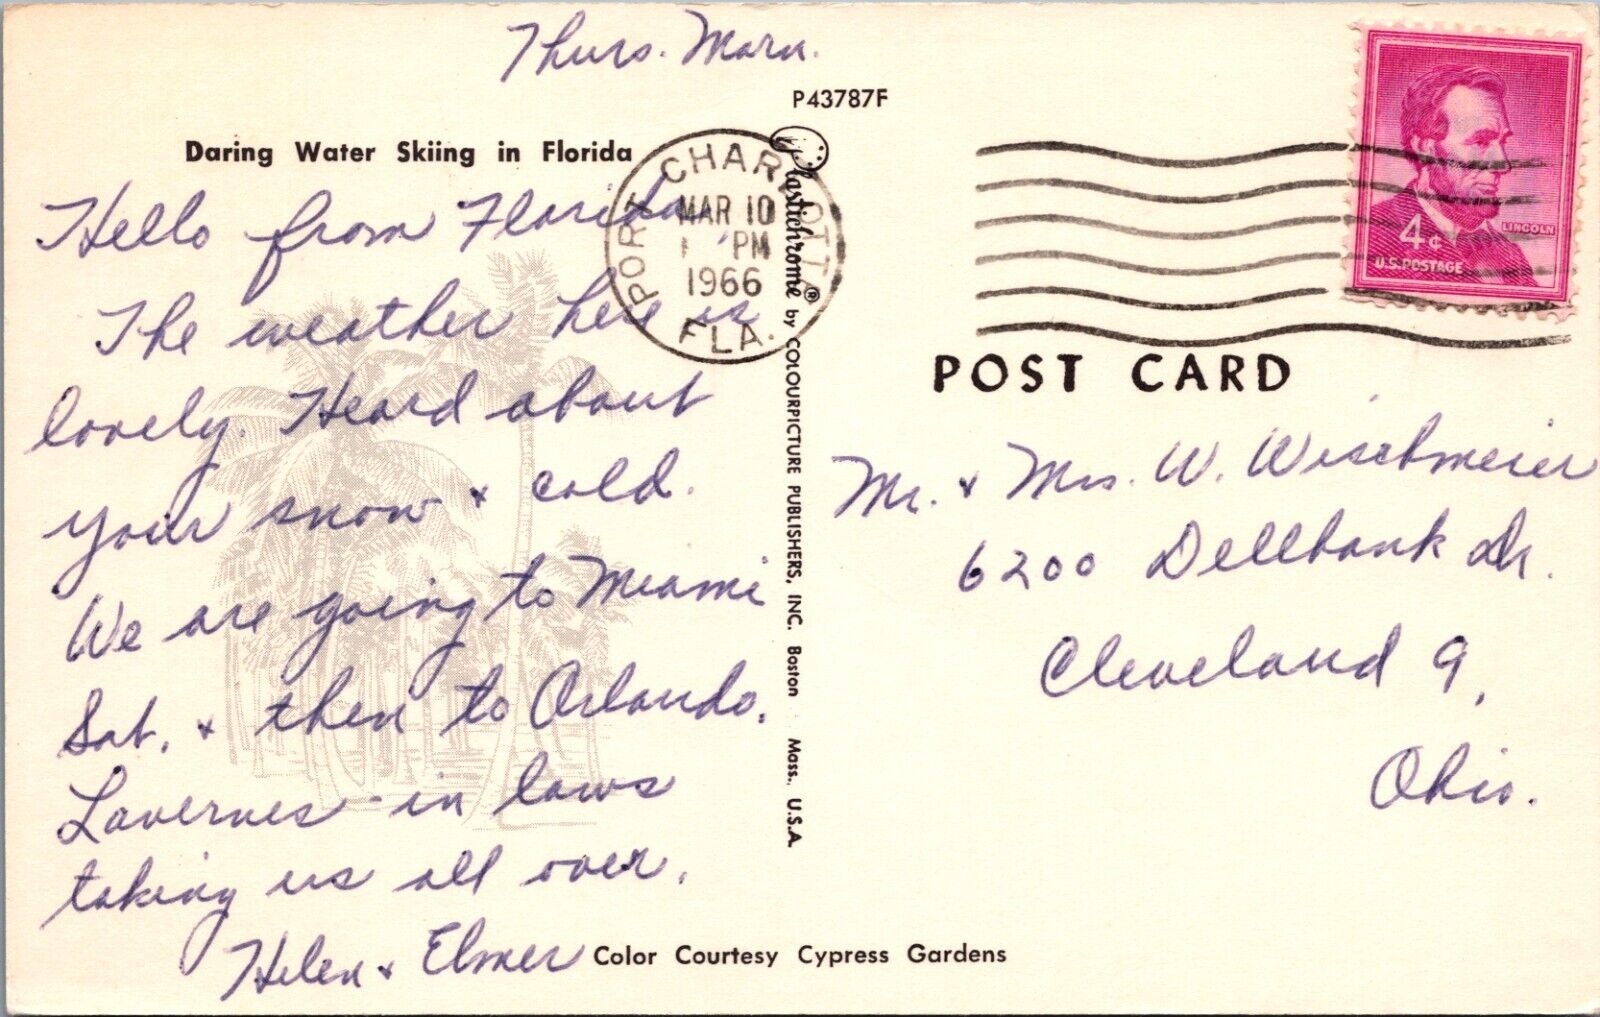 Thurs. Morn.
P43787F
Daring Water Skiing in Florida
Hello from Florida
The weather here is
lovely. Heard about
your snow & cold.
We are going to Miami
Sat. & then to Orlando.
Lavernes - in laws
taking us all over.
Helen & Elmer
Color Courtesy Cypress Gardens
PORT CHARLOTTE
MAR 10
PM
1966
FLA.
Plastichrome® by COLOURPICTURE PUBLISHERS, INC. Boston Mass., U.S.A.
4¢
LINCOLN
U.S. POSTAGE
POST CARD
Mr. & Mrs. W. Wischmeier
6200 Dellbank Dr.
Cleveland 9,
Ohio.